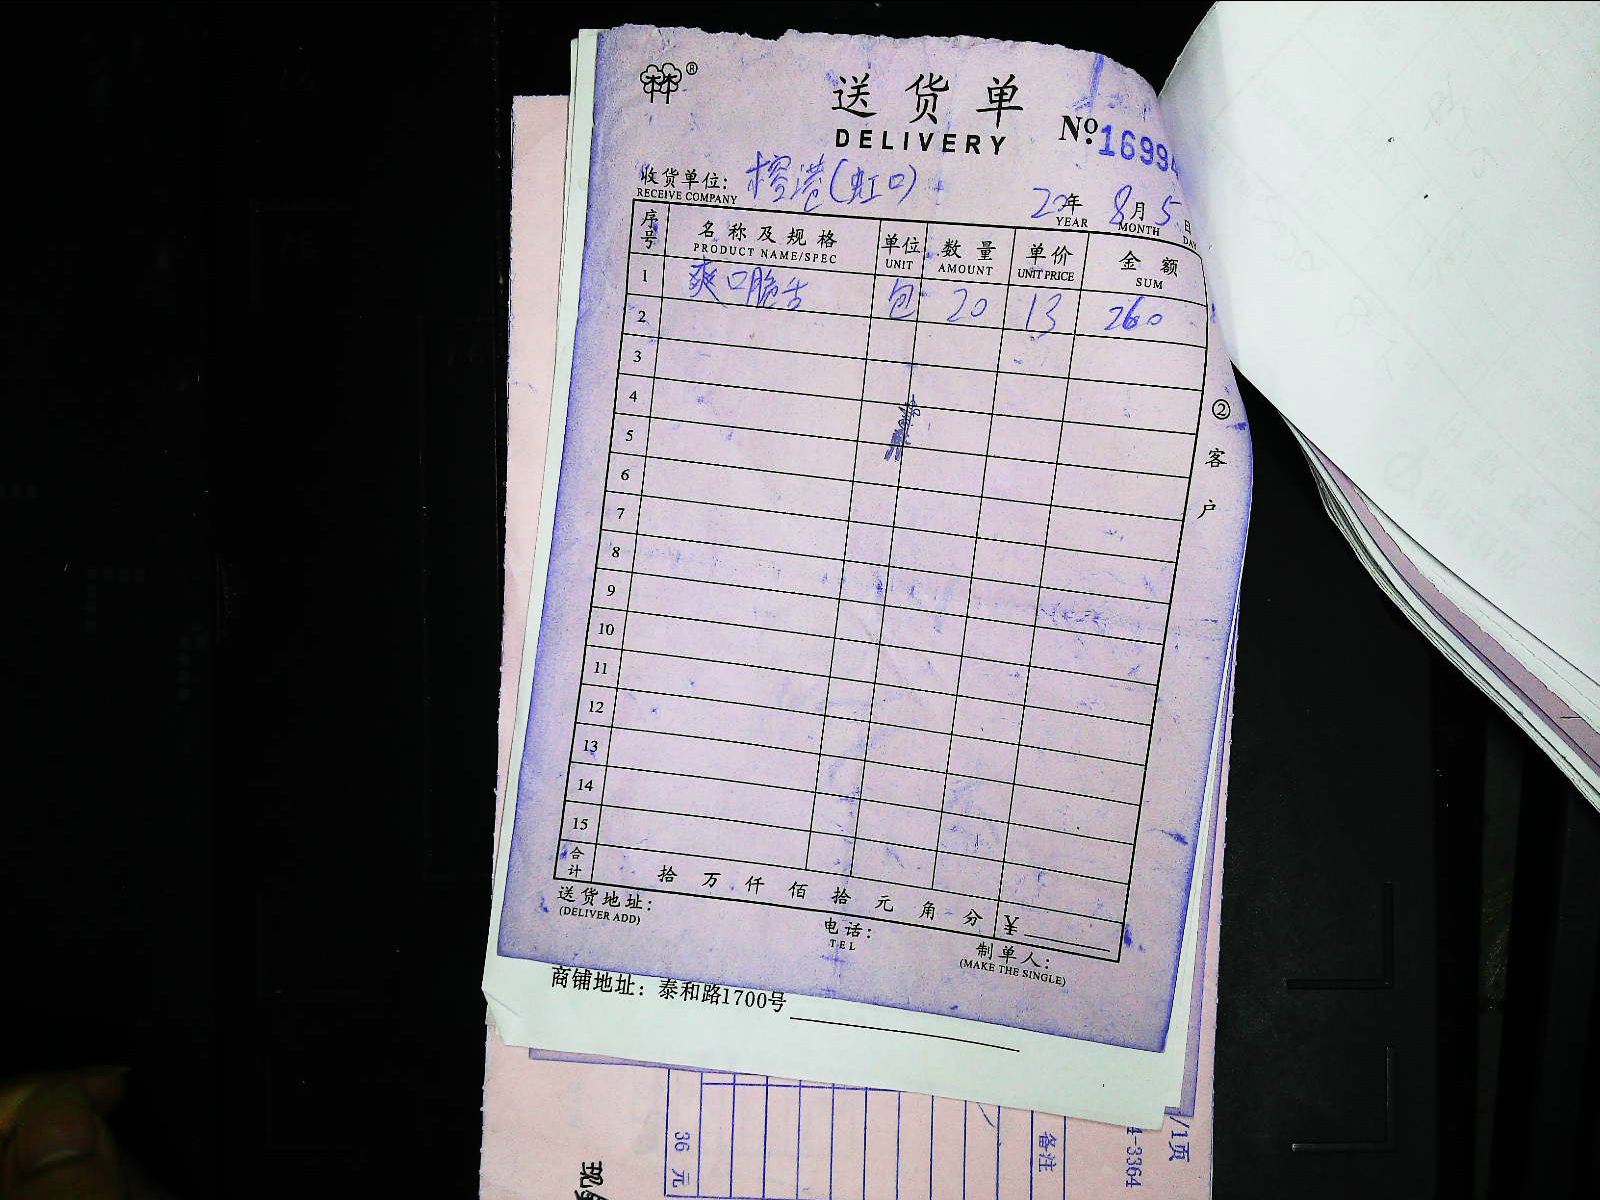 林®
送货单
DELIVERY
№:16994
收货单位: 榕港(虹口)
RECEIVE COMPANY
20年 8月 5日
YEAR MONTH DAY
序号 名称及规格 单位 数量 单价 金额
PRODUCT NAME/SPEC UNIT AMOUNT UNIT PRICE SUM
1 爽口脆舌 包 20 13 260
2
3
4
5
6
7
8
9
10
11
12
13
14
15
合计 拾 万 仟 佰 拾 元 角 分 ¥
② 客户
送货地址:
(DELIVER ADD)
电话:
TEL
制单人:
(MAKE THE SINGLE)
商铺地址: 泰和路1700号
36 元
备注
4-3364
/1页